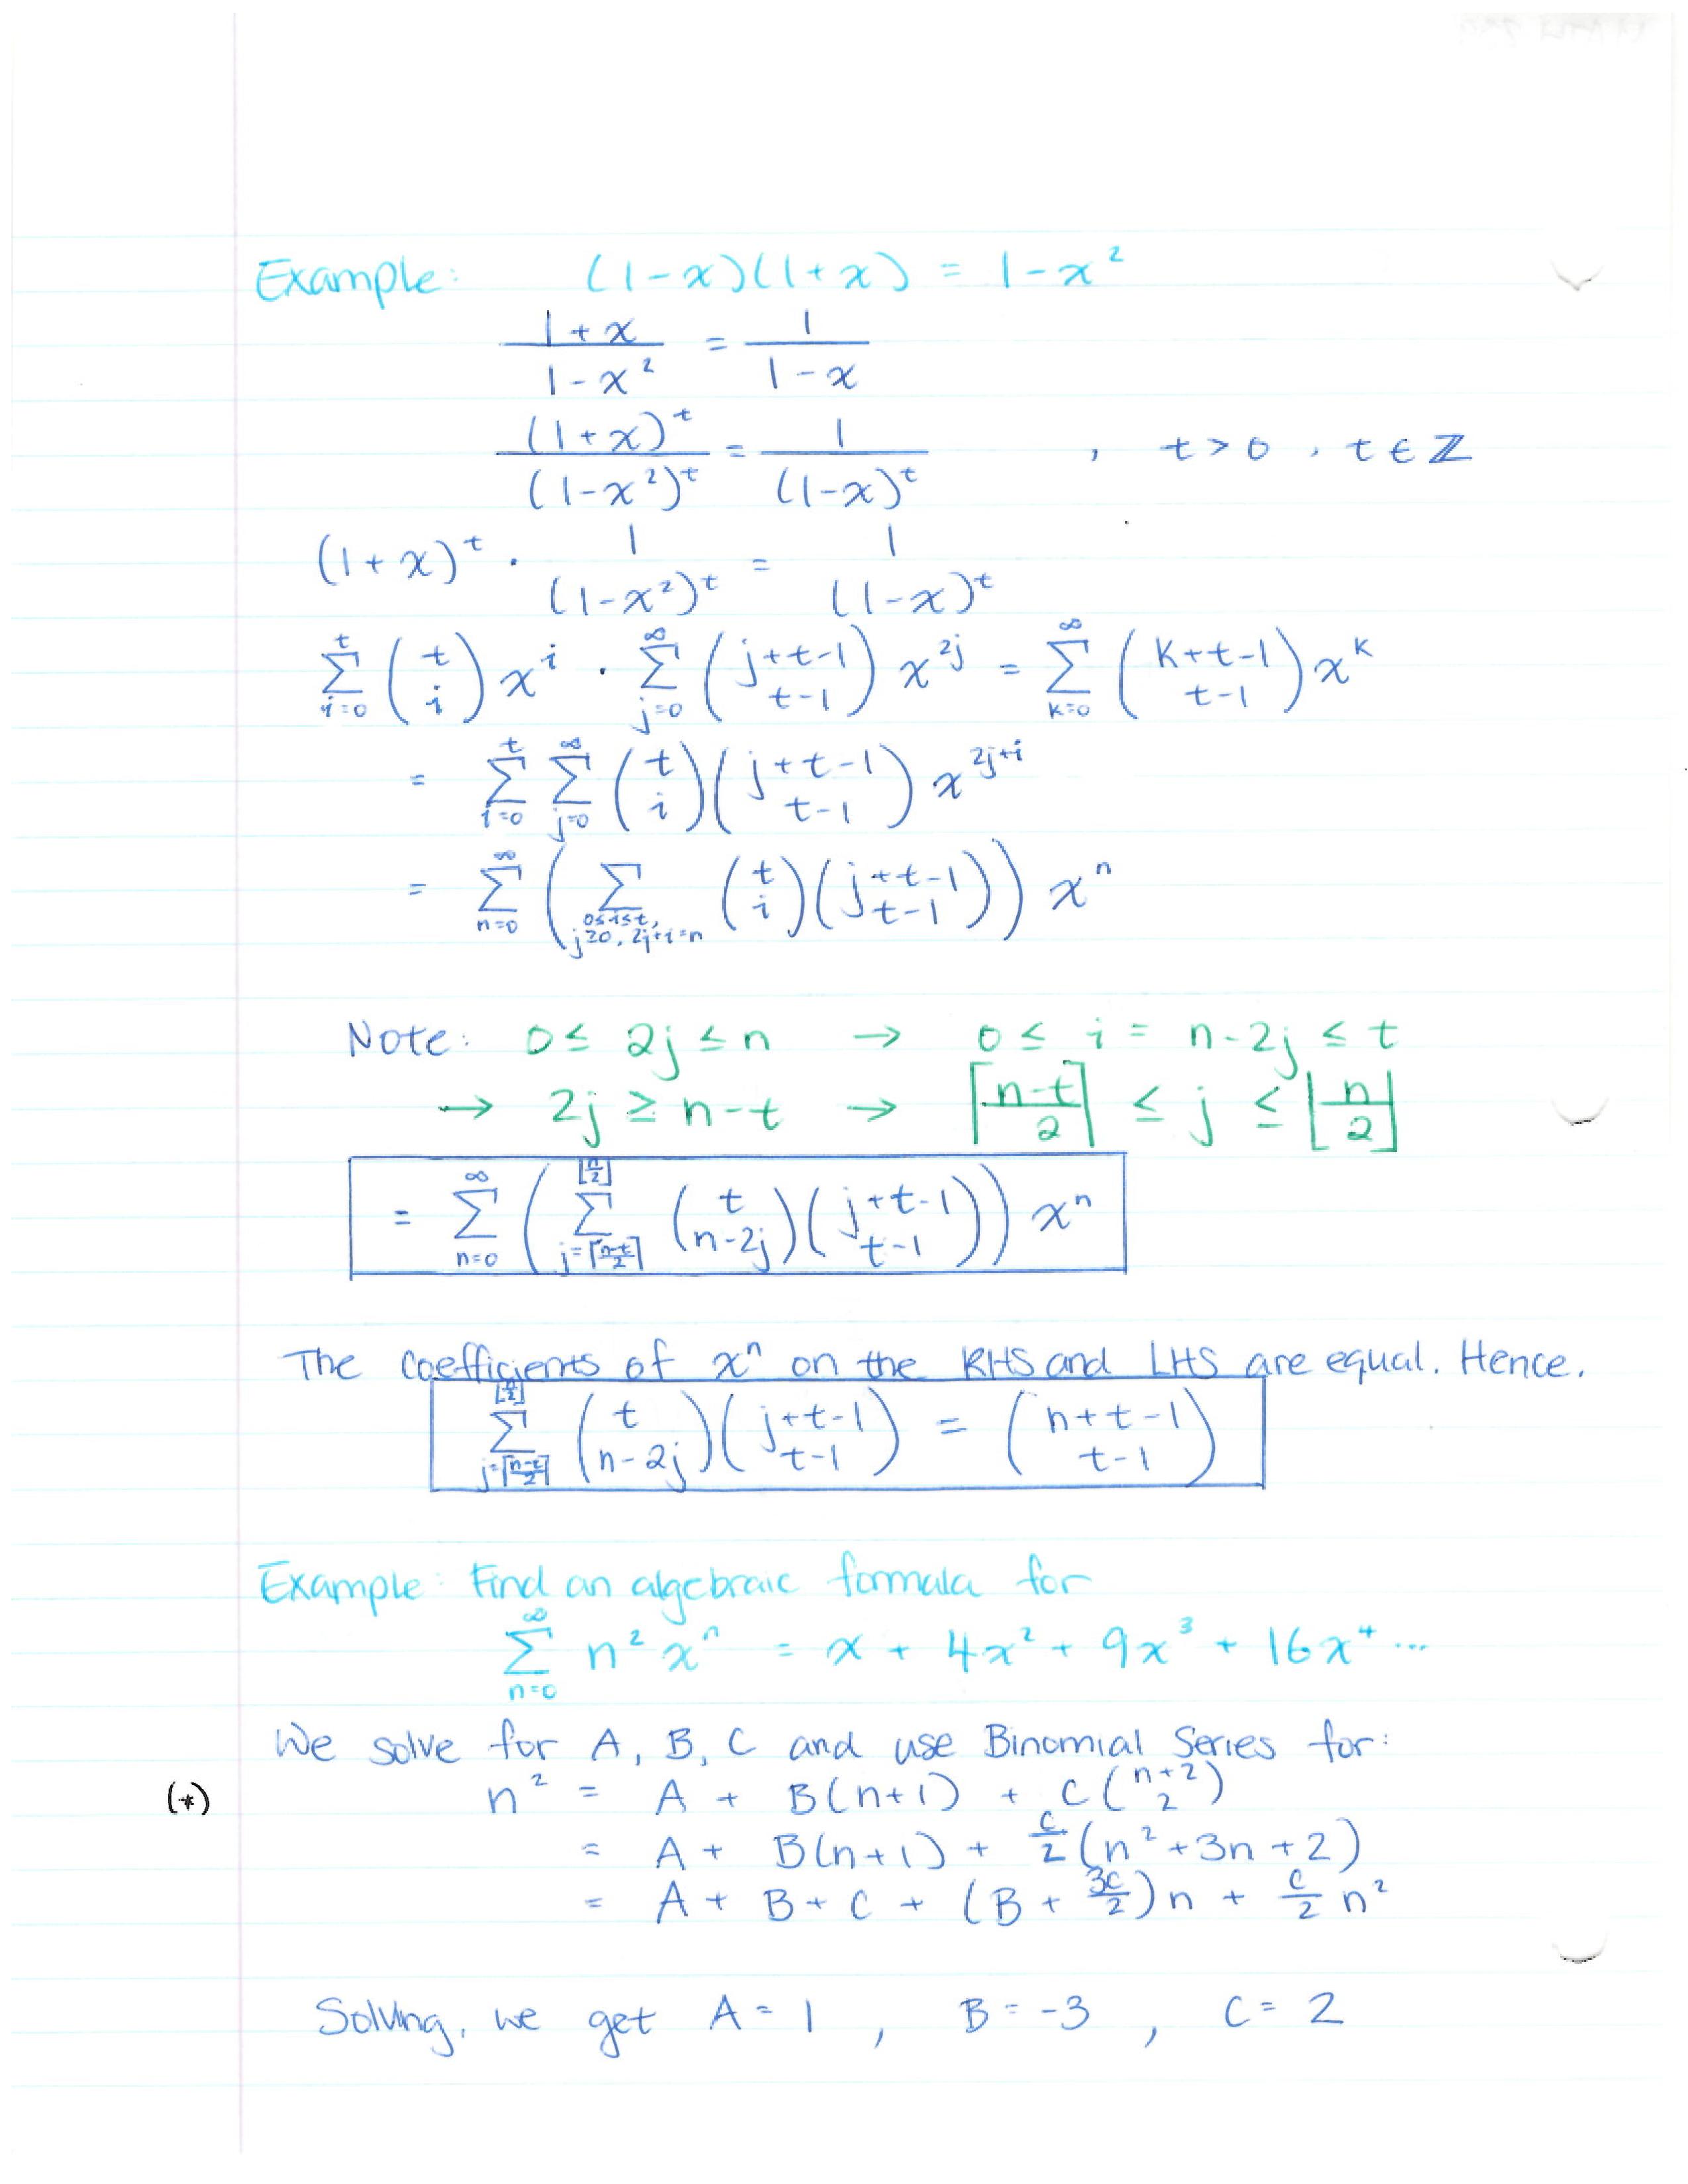 Example: (1-x)(1+x) = 1-x²
(1+x)/(1-x²) = 1/(1-x)
(1+x)^t/(1-x²)^t = 1/(1-x)^t , t>0, t∈ℤ
(1+x)^t · 1/(1-x²)^t = 1/(1-x)^t
∑_{i=0}^{t} (t choose i) x^i · ∑_{j=0}^{∞} (j+t-1 choose t-1) x^{2j} = ∑_{k=0}^{∞} (k+t-1 choose t-1) x^k
= ∑_{i=0}^{t} ∑_{j=0}^{∞} (t choose i)(j+t-1 choose t-1) x^{2j+i}
= ∑_{n=0}^{∞} (∑_{0≤i≤t, j≥0, 2j+i=n} (t choose i)(j+t-1 choose t-1)) x^n
Note: 0≤ 2j ≤ n → 0 ≤ i = n-2j ≤ t
→ 2j ≥ n-t → ⌈(n-t)/2⌉ ≤ j ≤ ⌊n/2⌋
= ∑_{n=0}^{∞} (∑_{j=⌈(n-t)/2⌉}^{⌊n/2⌋} (t choose n-2j)(j+t-1 choose t-1)) x^n
The coefficients of x^n on the RHS and LHS are equal. Hence,
∑_{j=⌈(n-t)/2⌉}^{⌊n/2⌋} (t choose n-2j)(j+t-1 choose t-1) = (n+t-1 choose t-1)
Example: Find an algebraic formula for
∑_{n=0}^{∞} n² x^n = x + 4x² + 9x³ + 16x⁴ ...
We solve for A, B, C and use Binomial Series for:
(*) n² = A + B(n+1) + C(n+2 choose 2)
= A + B(n+1) + C/2(n²+3n+2)
= A + B + C + (B + 3C/2)n + C/2 n²
Solving, we get A = 1 , B = -3 , C = 2